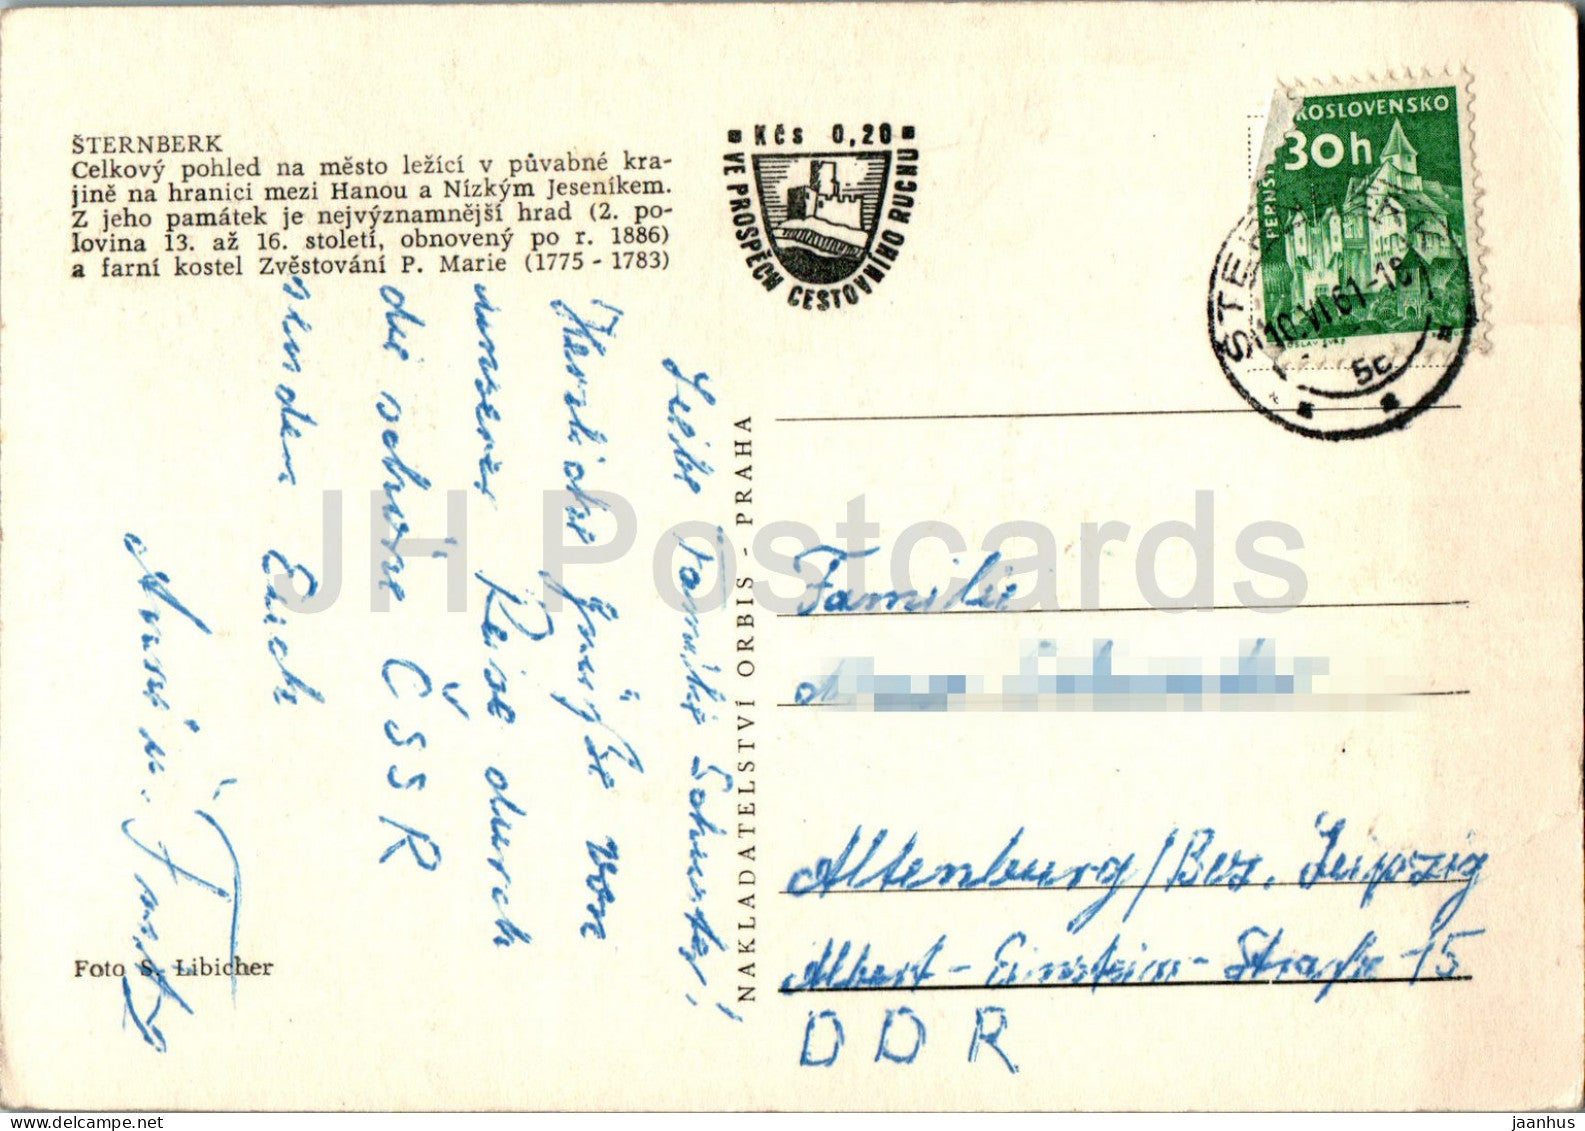 ŠTERNBERK
Celkový pohled na město ležící v půvabné kra-
jině na hranici mezi Hanou a Nízkým Jeseníkem.
Z jeho památek je nejvýznamnější hrad (2. po-
lovina 13. až 16. století, obnovený po r. 1886)
a farní kostel Zvěstování P. Marie (1775 - 1783)
Kčs 0,20
VE PROSPĚCH CESTOVNÍHO RUCHU
KOSLOVENSKO
30h
PERNŠT
10.VI.61-18
5c
Liebe Familie Schuster!
Herzliche Grüße von
unserer Reise durch
die schöne ČSSR
senden Euch
Foto S. Libicher
NAKLADATELSTVÍ ORBIS - PRAHA
Familie
Altenburg/Bez. Leipzig
Albert-Einstein-Straße 15
DDR
JH Postcards
delcampe.net
jaanhus